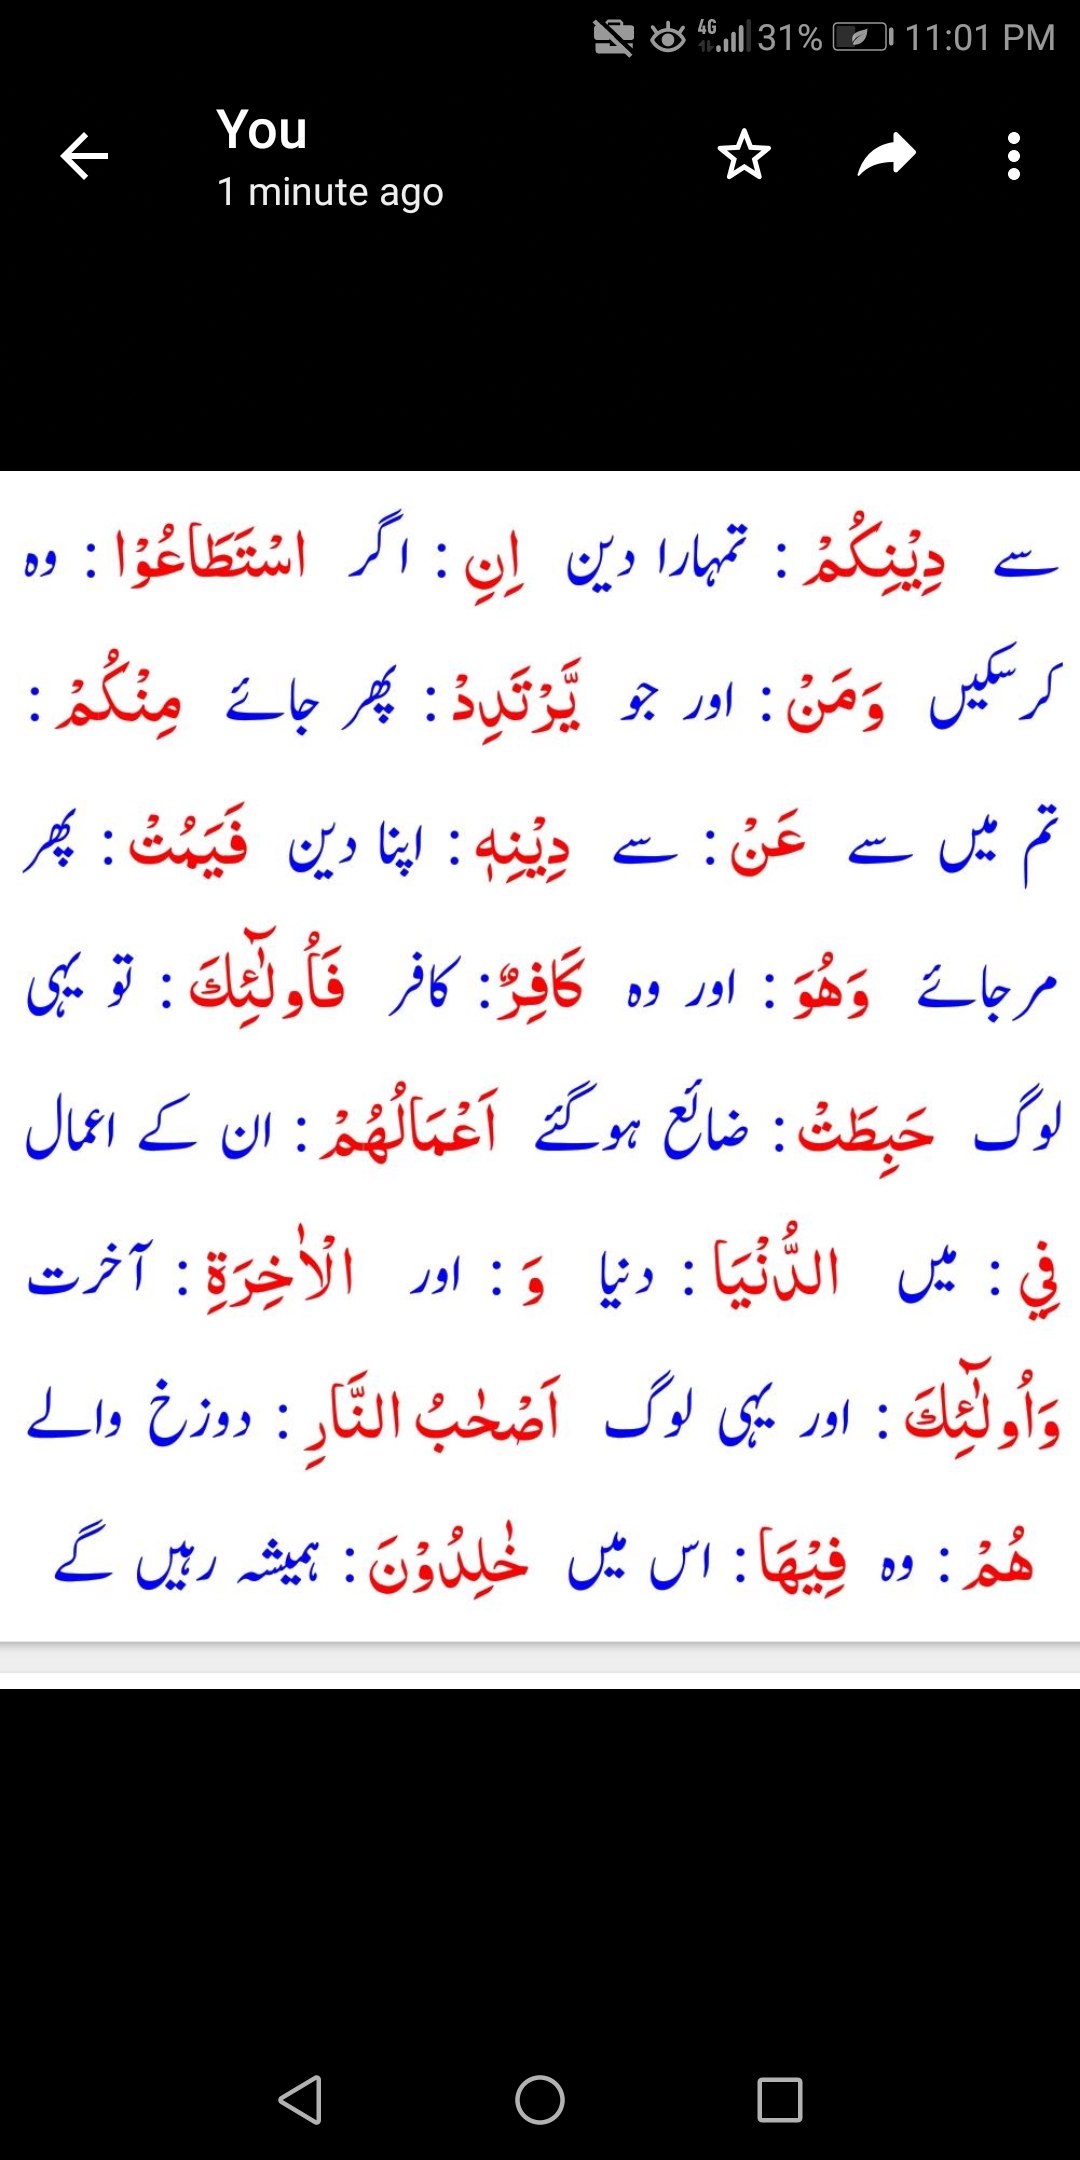 4G 31% 11:01 PM
You
1 minute ago
سے دِيْنِكُمْ : تمہارا دین اِنِ : اگر اسْتَطَاعُوْا : وہ
کرسکیں وَمَنْ : اور جو يَّرْتَدِدْ : پھر جائے مِنْكُمْ :
تم میں سے عَنْ : سے دِيْنِهٖ : اپنا دین فَيَمُتْ : پھر
مرجائے وَھُوَ : اور وہ كَافِرٌ : کافر فَاُولٰٓئِكَ : تو یہی
لوگ حَبِطَتْ : ضائع ہوگئے اَعْمَالُھُمْ : ان کے اعمال
فِي : میں الدُّنْيَا : دنیا وَ : اور الْاٰخِرَةِ : آخرت
وَاُولٰٓئِكَ : اور یہی لوگ اَصْحٰبُ النَّارِ : دوزخ والے
ھُمْ : وہ فِيْھَا : اس میں خٰلِدُوْنَ : ہمیشہ رہیں گے